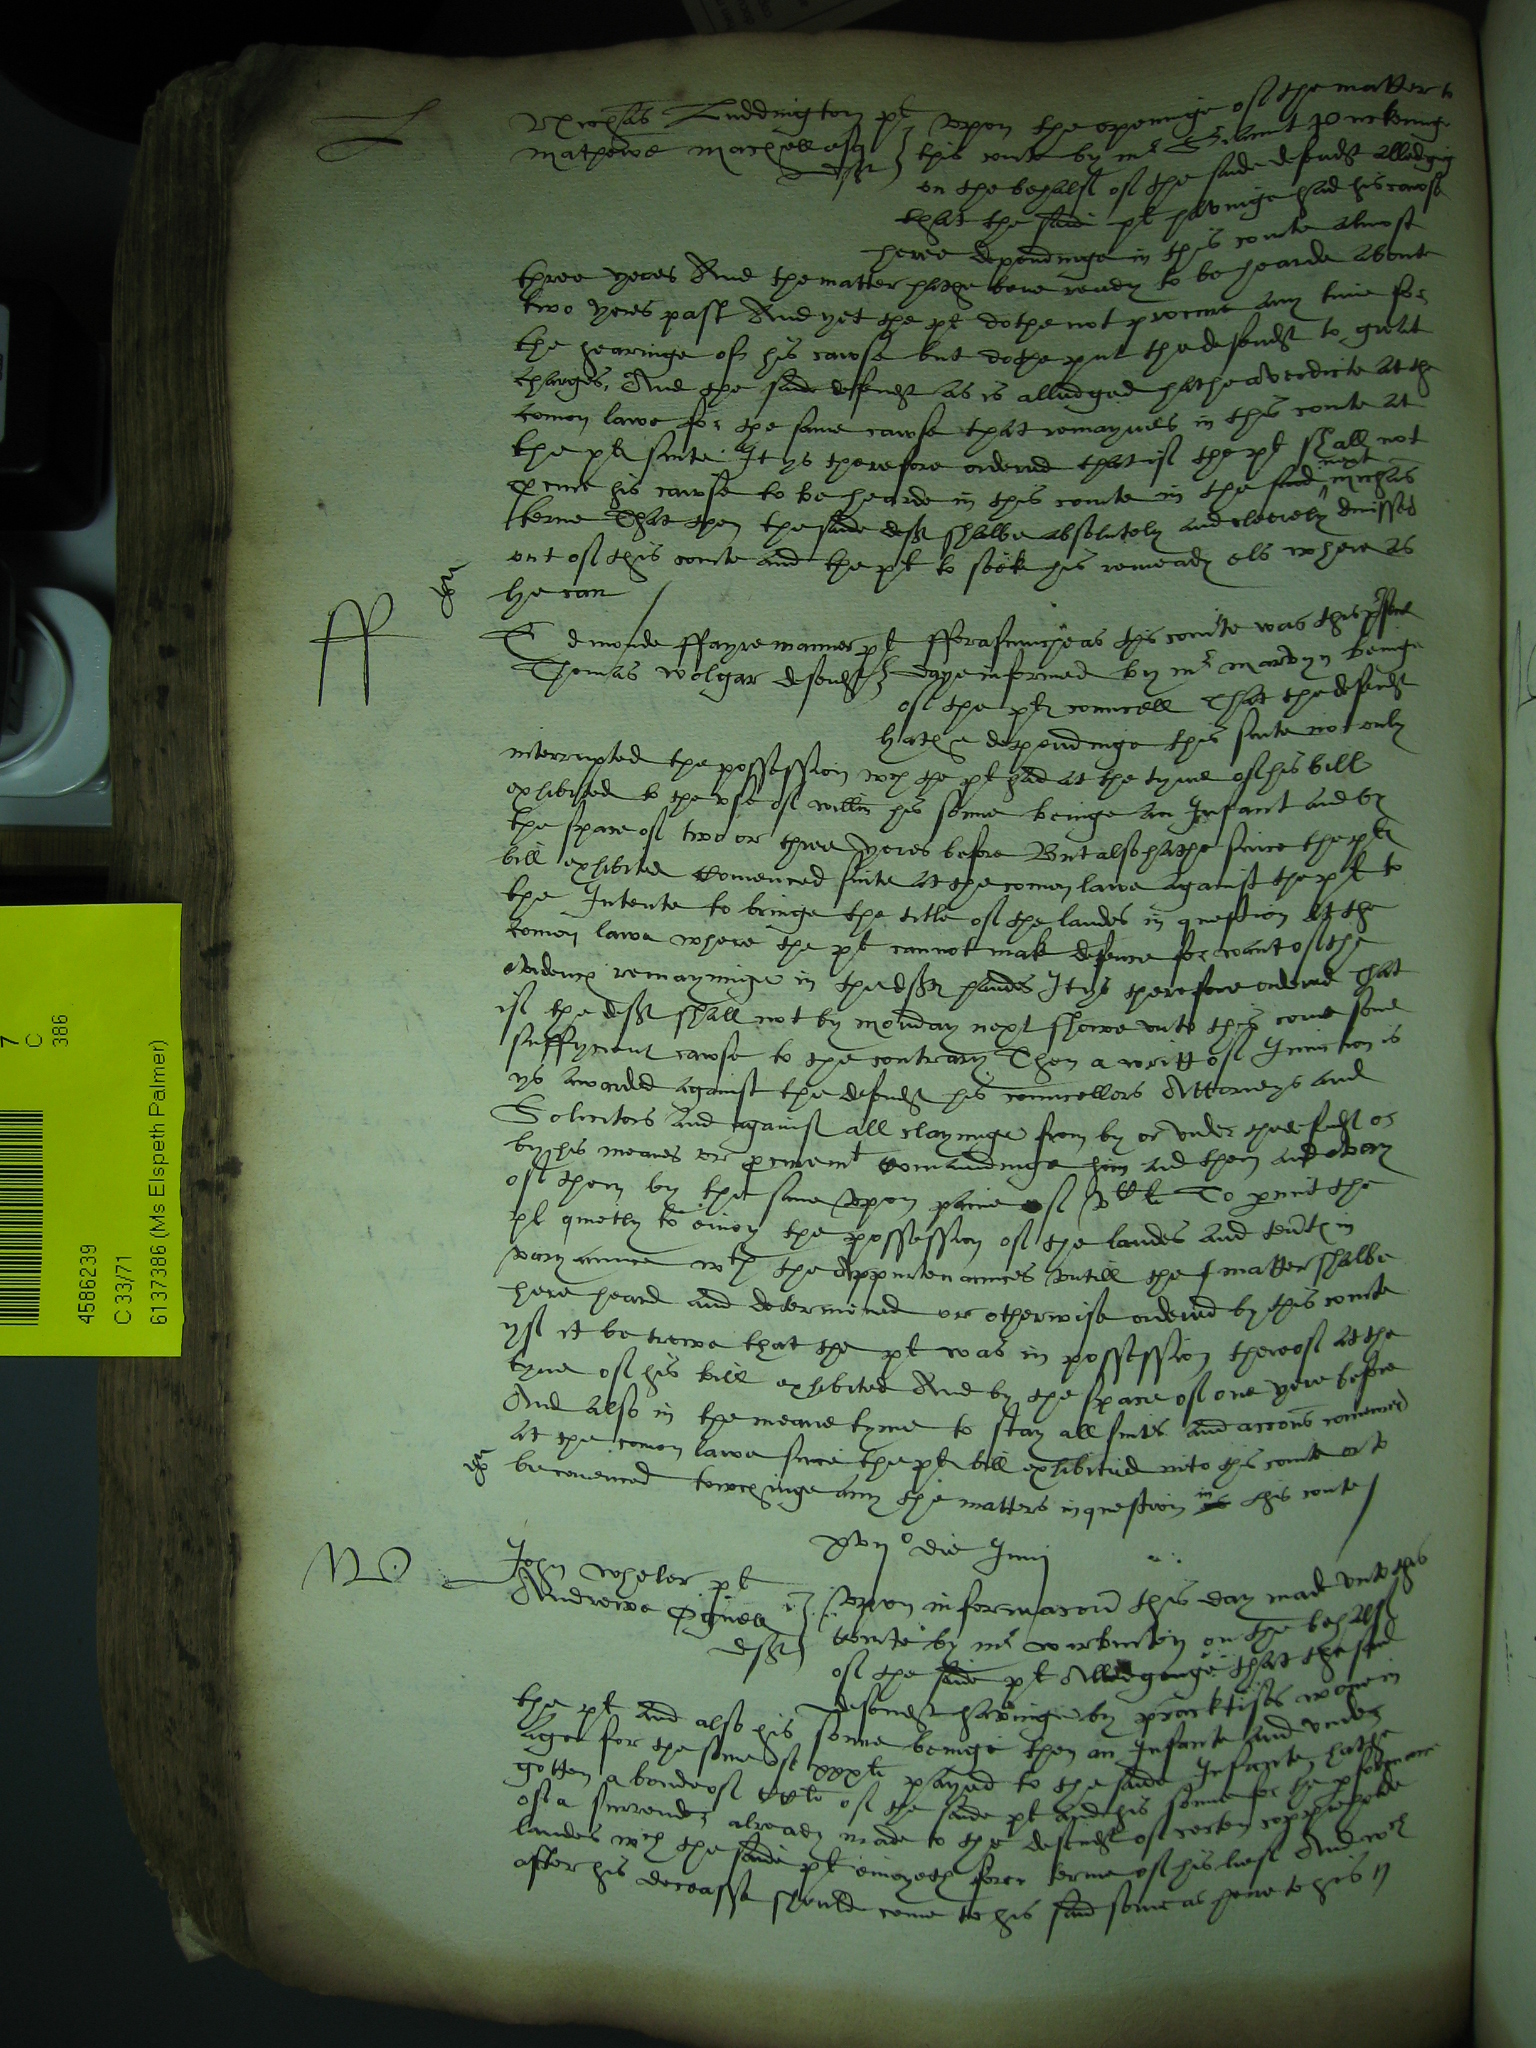 L
Nicholas Luddington pl
Mathewe Machell esq
deft
Upon the openinge of the matter to
this courte by Mr Serieant Puckeringe
on the behalf of the saide defendt alledging
that the said pl havinge had his cawse
heere dependinge in this courte almost
three yeres And the matter hathe bene ready to be hearde aboute
two yeres past And yet the pl dothe not procure any time for
the hearinge of his cawse but dothe put the defendt to great
charges, And the saide defendt as is alledged hathe a verdicte at the
comon lawe for the same cawse that remaynes in this courte at
the pl suite It ys therefore ordered that if the pl shall not
pcure his cawse to be hearde in this courte in the said next Michas
terme That then the saide deft shalbe absolutely and cleerely dmissed
out of this courte and the pl to seek his remeady els where as
he can
ff
Edmonde ffayremanner pl
Thomas Wolgar defendt
fforasmuche as this courte was this psent
daye informed by Mr Marvyn beinge
of the pl councell That the defendt
hathe dependinge this suite not only
interrupted the possession wch the pl had at the tyme of his bill
exhibited to the use of Willm his sonne beinge an Infant and by
the space of two or three yeres before But also hathe since the pl
bill exhibited comenced suite at the comon lawe against the pl to
the Intente to bringe the title of the landes in question at the
comon lawe where the pl cannot make defence for want of the
evidence remayninge in the deft handes It ys therefore ordered That
if the deft shall not by Monday next shewe unto this courte some
suffycient cawse to the contrary Then a writt of Iniunction is
ys awarded against the defendt his councellors Attorneys and
Solicitors And against all clayminge from by or under the defendt or
by his meanes or pcurement comaundinge him and them and every
of them by the same upon paine of To pmit the
pl quietly to enioy the possession of the landes and tents in
varyaunce wth the appurtenaunces untill the matter shalbe
here heard and determined or otherwise ordered by this courte
yf it be trewe that the pl was in possession thereof at the
tyme of his bill exhibited And by the space of one yere before
And also in the meane tyme to stay all suites and accons comenced
at the comon lawe since the pl bill exhibited into this courte or to
be comenced towchinge any the matters in question in this courte
die Junij
John Wheler pl
Andrewe
deft
Upon informacon this day made unto this
courte by Mr Warburton on the behalf
of the saide pl Alledginge that the said
defendt havinge by practises wonne in
the pl and also his sonne beinge then an Infante and under
age for the some of xxxli payed to the saide Infante, hathe
gotten a bonde of of the saide pl and his sonne for the pformance
of a surrender already made to the defendt of certen coppieholde
landes wch the saide pl enioyeth for terme of his lief And wch
after his decease should come to his said sonne as heire to his
4586239
C 33/71
6137386 (Ms Elspeth Palmer)
7
C
386